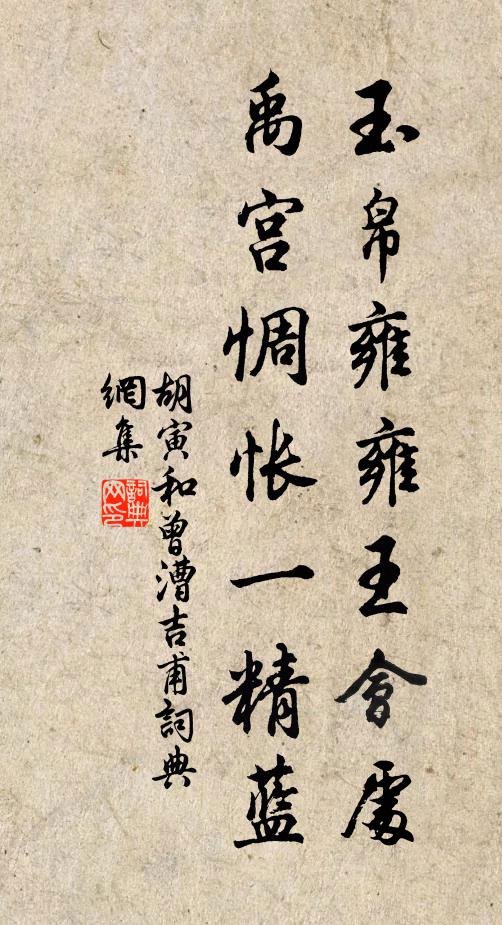 玉帛雍雍王會處
禹宫惆怅一精藍
胡寅和曾漕吉甫詞典
網集
詞典
网印